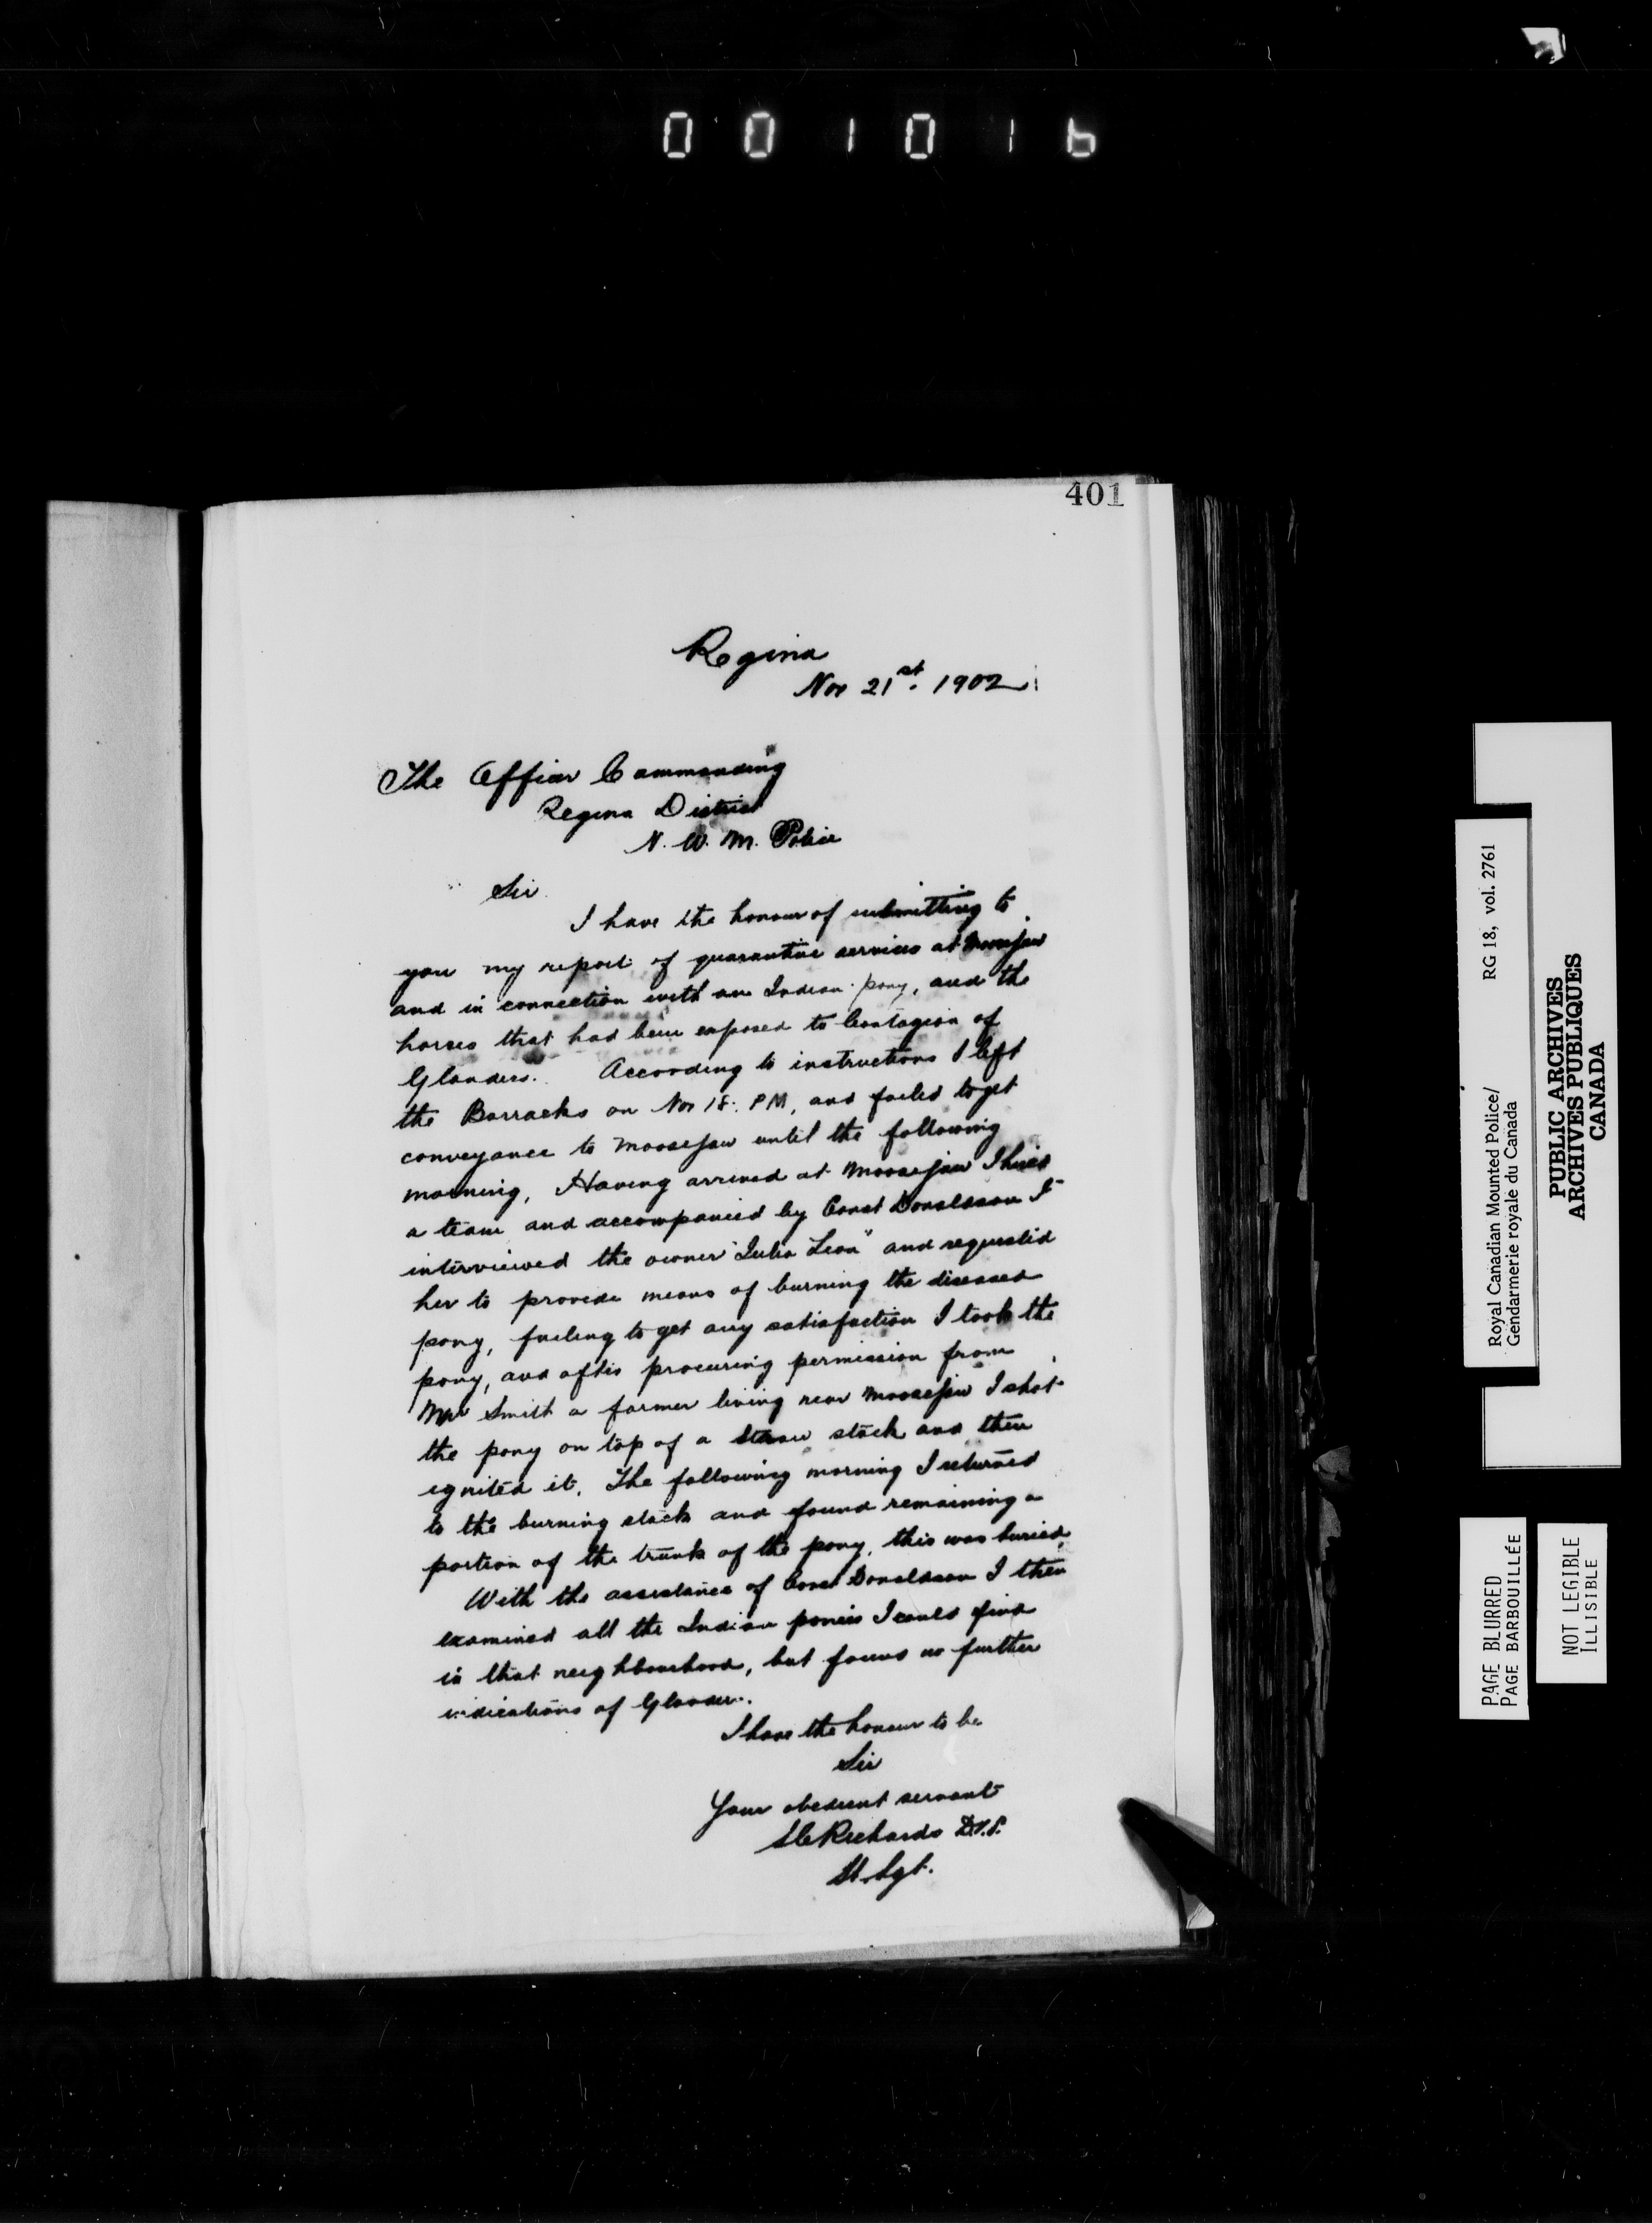 001016
401
Regina
Nov 21st. 1902
The Officer Commanding
Regina District
N. W. M. Police
Sir
I have the honour of submitting to
you my report of quarantine services at Moosejaw
and in connection with an Indian pony, and the
horses that had been exposed to Contagion of
Glanders. According to instructions I left
the Barracks on Nov 18. PM, and failed to get
conveyance to Moosejaw until the following
morning, Having arrived at Moosejaw I hired
a team and accompanied by Const Donaldson I
interviewed the owner "Julia Leon" and requested
her to provide means of burning the diseased
pony, failing to get any satisfaction I took the
pony, and after procuring permission from
Mr Smith a farmer living near Moosejaw I shot
the pony on top of a straw stack and then
ignited it. The following morning I returned
to the burning stack and found remaining a
portion of the trunk of the pony, this was buried.
With the assistance of Const Donaldson I then
examined all the Indian ponies I could find
in that neighbourhood, but found no further
indications of Glanders.
I have the honour to be
Sir
Your obedient servant
Richards D.V.S.
St. Sgt.
Royal Canadian Mounted Police/ RG 18, vol. 2761
Gendarmerie royale du Canada
PUBLIC ARCHIVES
ARCHIVES PUBLIQUES
CANADA
PAGE BLURRED
PAGE BARBOUILLÉE
NOT LEGIBLE
ILLISIBLE